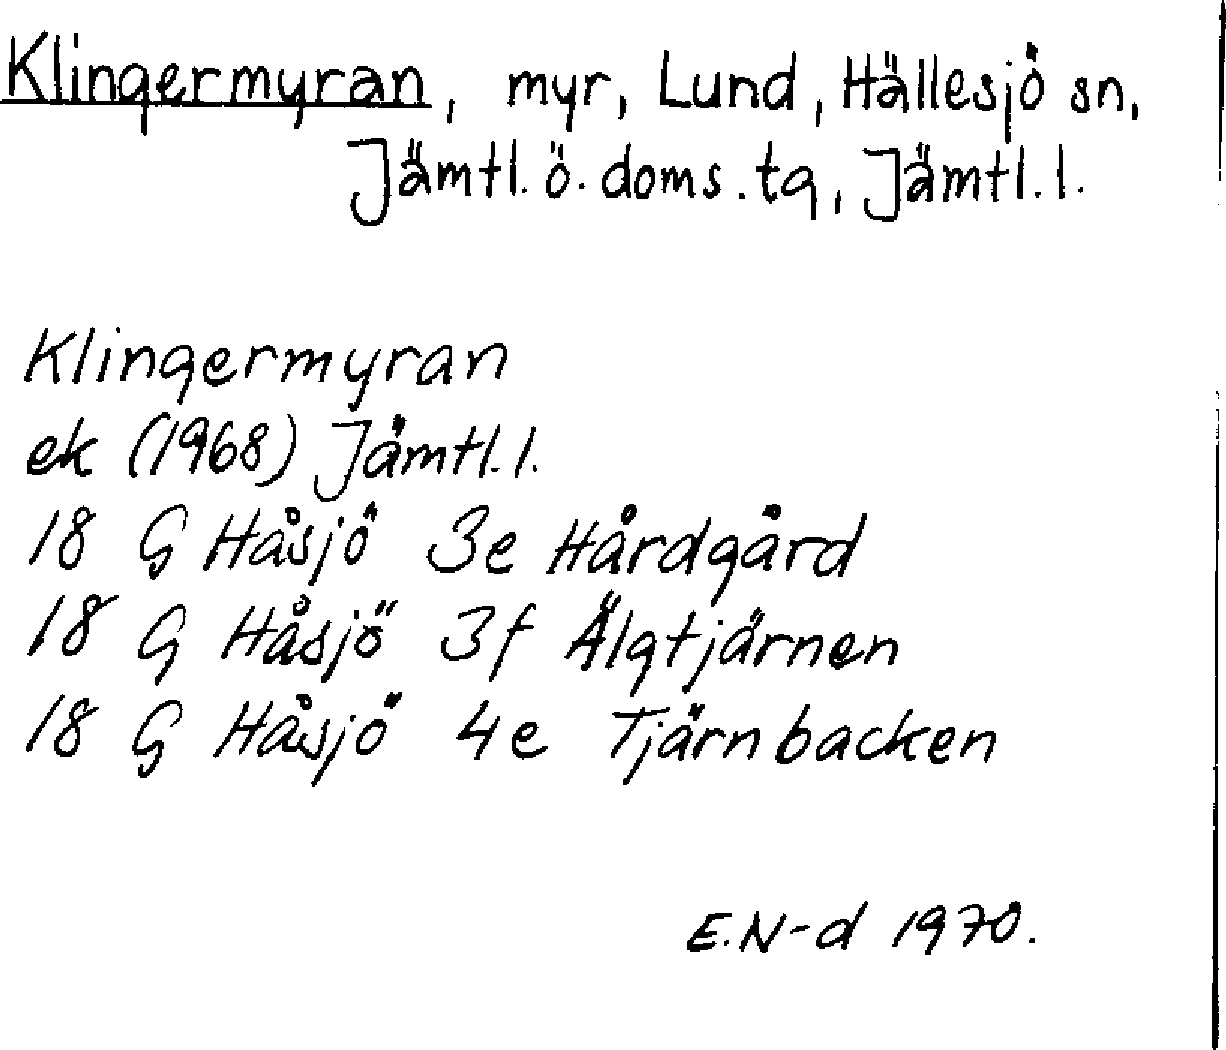 Klingermyran, myr, Lund, Hällesjö sn,
Jämtl. ö. doms. tg, Jämtl. l.
Klingermyran
ek (1968) Jämtl. l.
18 G Håsjö 3e Hårdgård
18 G Håsjö 3f Älgtjärnen
18 G Håsjö 4e Tjärnbacken
E.N-d 1970.